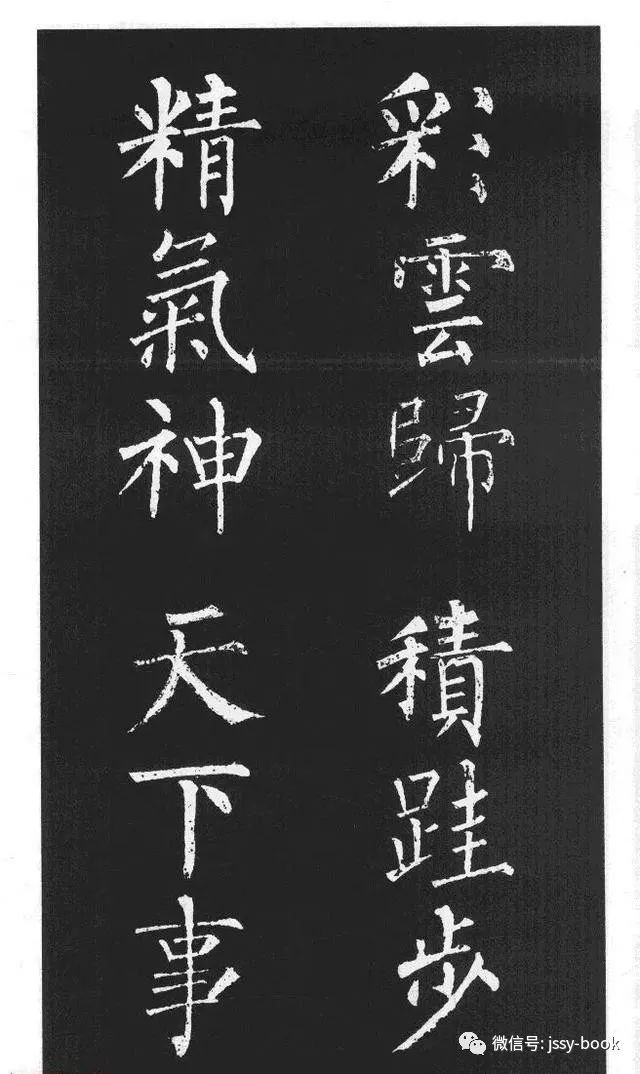 彩雲歸
積跬步
精氣神
天下事
微信号: jssy-book